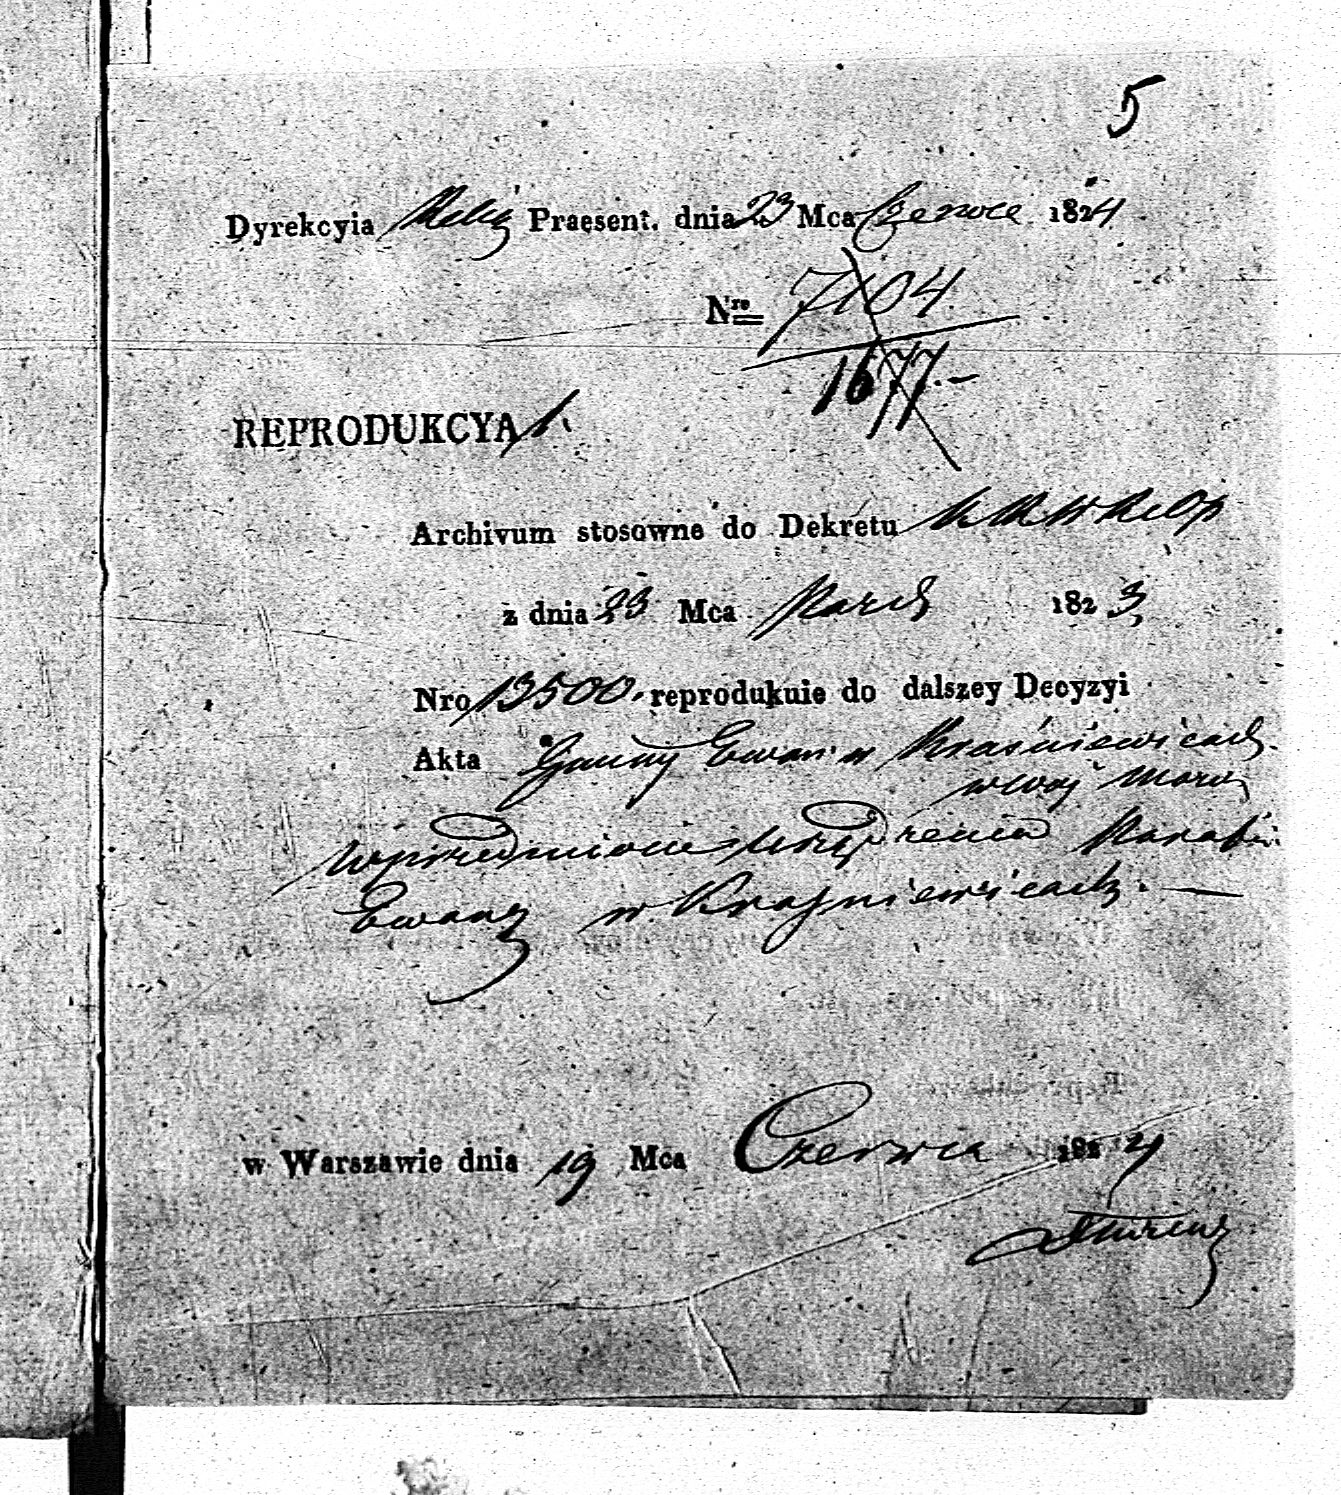 5
Dyrekcyia Relig Praesent. dnia 23 Mca Czerwca 1824
Nro 7104
1677.-
REPRODUKCYA 1.
Archivum stosownie do Dekretu
z dnia 23 Mca March 1823
Nro 13500. reprodukuie do dalszey Decyzyi
Akta Gminy Ewan: w Kraśniewicach
w Woj Mazow
w przedmiocie urządzenia Parafii
Ewang w Kraśniewicach. —
w Warszawie dnia 19 Mca Czerwca 1824